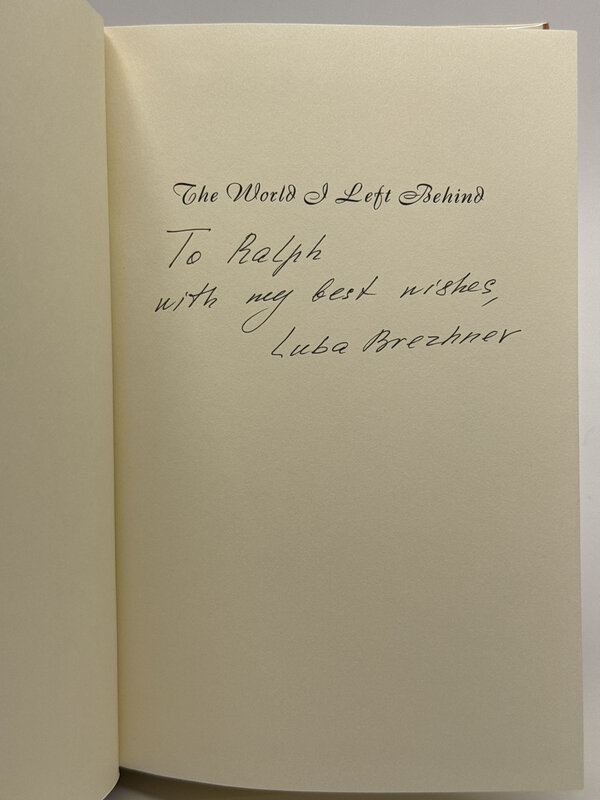 The World I Left Behind
To Ralph
with my best wishes,
Luba Brezhnev